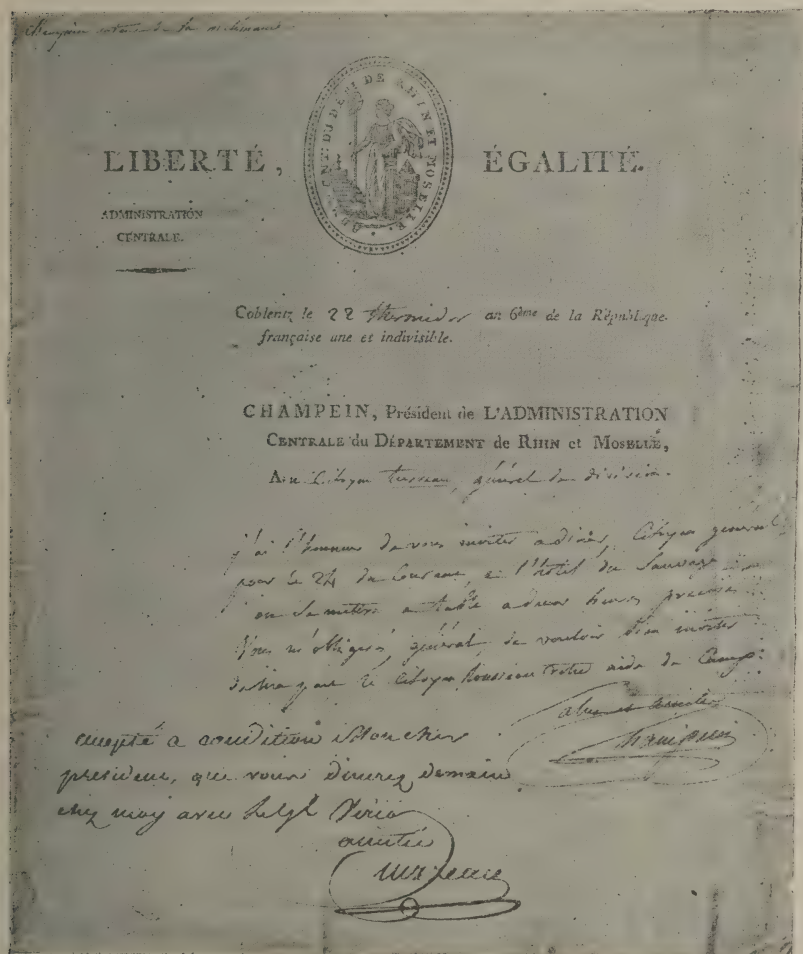 DU DÉPT DE RHIN ET MOSELLE.
LIBERTÉ, ÉGALITÉ.
ADMINISTRATION
CENTRALE.
Coblentz le 22 thermidor an 6ème de la République
française une et indivisible.
CHAMPEIN, Président de L'ADMINISTRATION
CENTRALE du DÉPARTEMENT de RHIN et MOSELLE,
Au Citoyen Turreau, général de division.
j'ai l'honneur de vous inviter a diner, Citoyen général
pour le 24 du Courant, a l'hôtel du Sauvage
on se mettra a table a deux heures précises
Vous m'obligerés, général, de vouloir bien inviter
de ma part le Citoyen Rousseau votre aide de Camp.
amitiés
Champein
accepté a condition mon cher
president, que vous dinerez demain
chez moy avec le gl
amitié
turreau